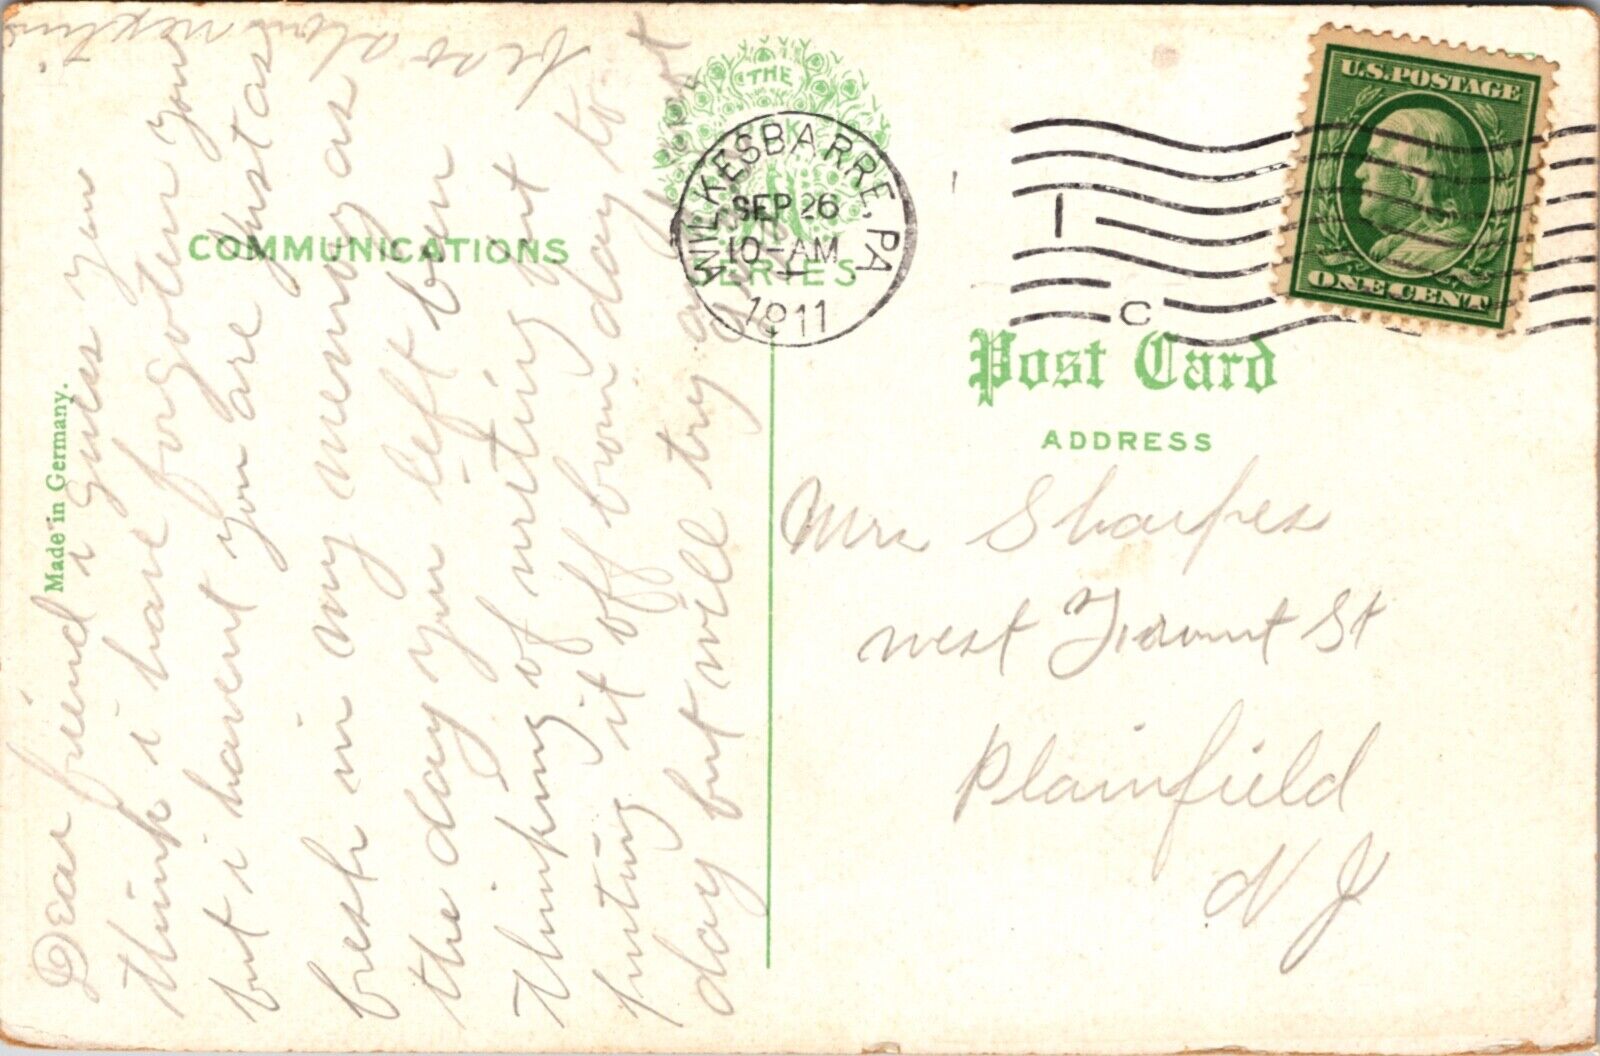 Dear friend i guess you
think i have forgoten you
but i havent you are just as
fresh in my memory as
the day you left been
thinking of writing but
puting it off from day to
day but will try and not
be so slow next time
Made in Germany.
COMMUNICATIONS
THE
SERIES
WILKESBARRE, PA
SEP 26
10-AM
1911
1
C
U.S. POSTAGE
ONE CENT
Post Card
ADDRESS
Mrs Sharpes
west St
Plainfield
N J